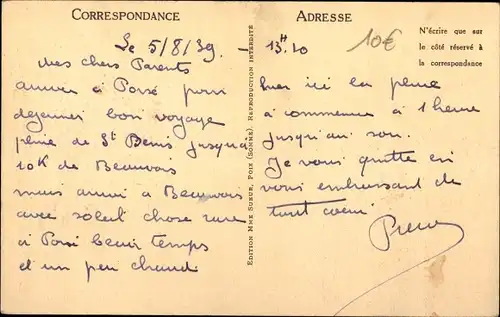 CORRESPONDANCE
Le 5/8/39
mes chers Parents
arrivé à Poix pour
dejeuner bon voyage
pluie de St Denis jusqu'a
10K de Beauvois
mais arrivé a Beauvais
avec soleil chose rare
à Poix beau temps
et un peu chaud
EDITION MME SUEUR, POIX (SOMME). REPRODUCTION INTERDITE
ADRESSE
13H10
10€
N'écrire que sur
le côté réservé à
la correspondance
hier ici la pluie
a commencé a 1 heure
jusqu'au soir.
Je vous quitte en
vous embrassant de
tout coeur